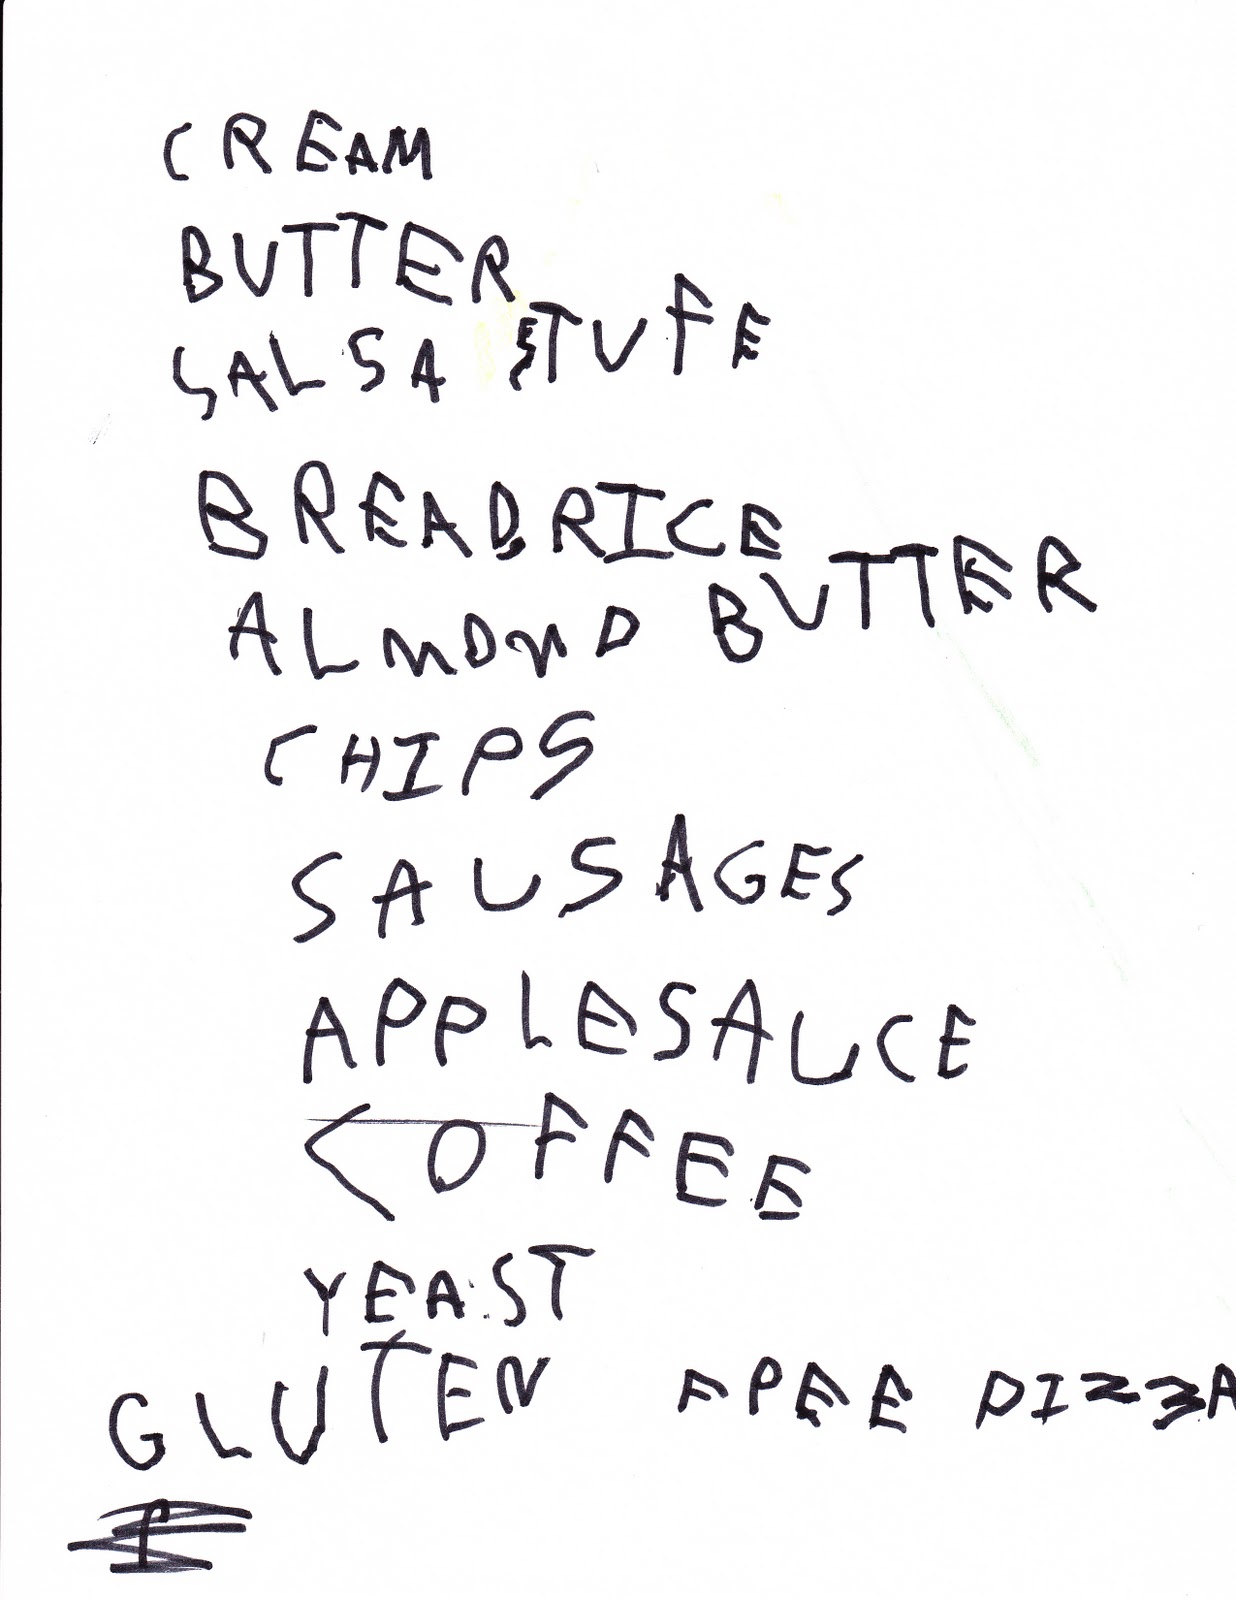 CREAM
BUTTER
SALSA STUFE
BREADRICE
ALMOND BUTTER
CHIPS
SAUSAGES
APPLESAUCE
COFFEE
YEAST
GLUTEN FPEE PIZZA